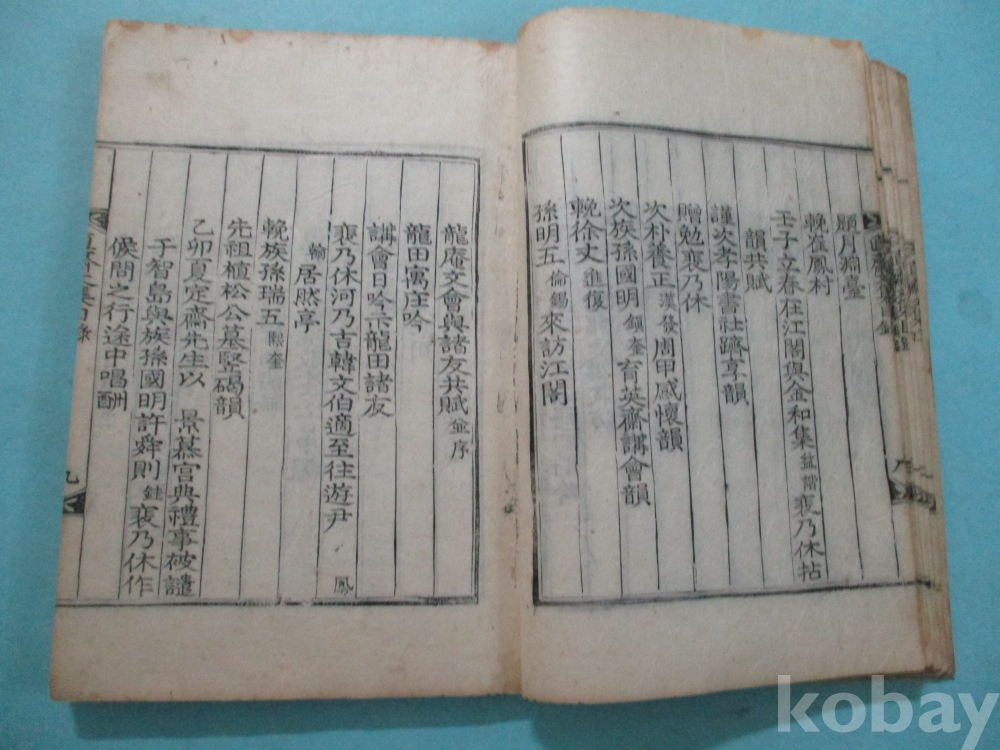 題月淵臺
輓崔鳳村
壬子立春在江閣與金和集 益階 裵乃休拈
韻共賦
謹次孝陽書社躋亨韻
贈勉裵乃休
次朴養正 漢發 周甲感懷韻
次族孫國明 鎭奎 育英齋講會韻
輓徐丈 進復
孫明五 倫錫 來訪江閣
龍庵文會與諸友共賦 並序
龍田寓庄吟
講會日吟示龍田諸友
裵乃休河乃吉韓文伯適至往遊尹 鳳
翰 居然亭
輓族孫瑞五 熙奎
先祖植松公墓竪碣韻
乙卯夏定齋先生以 景慕宮典禮事被譴
于智島與族孫國明許舜則 銈 裵乃休作
候問之行途中唱酬
九
kobay